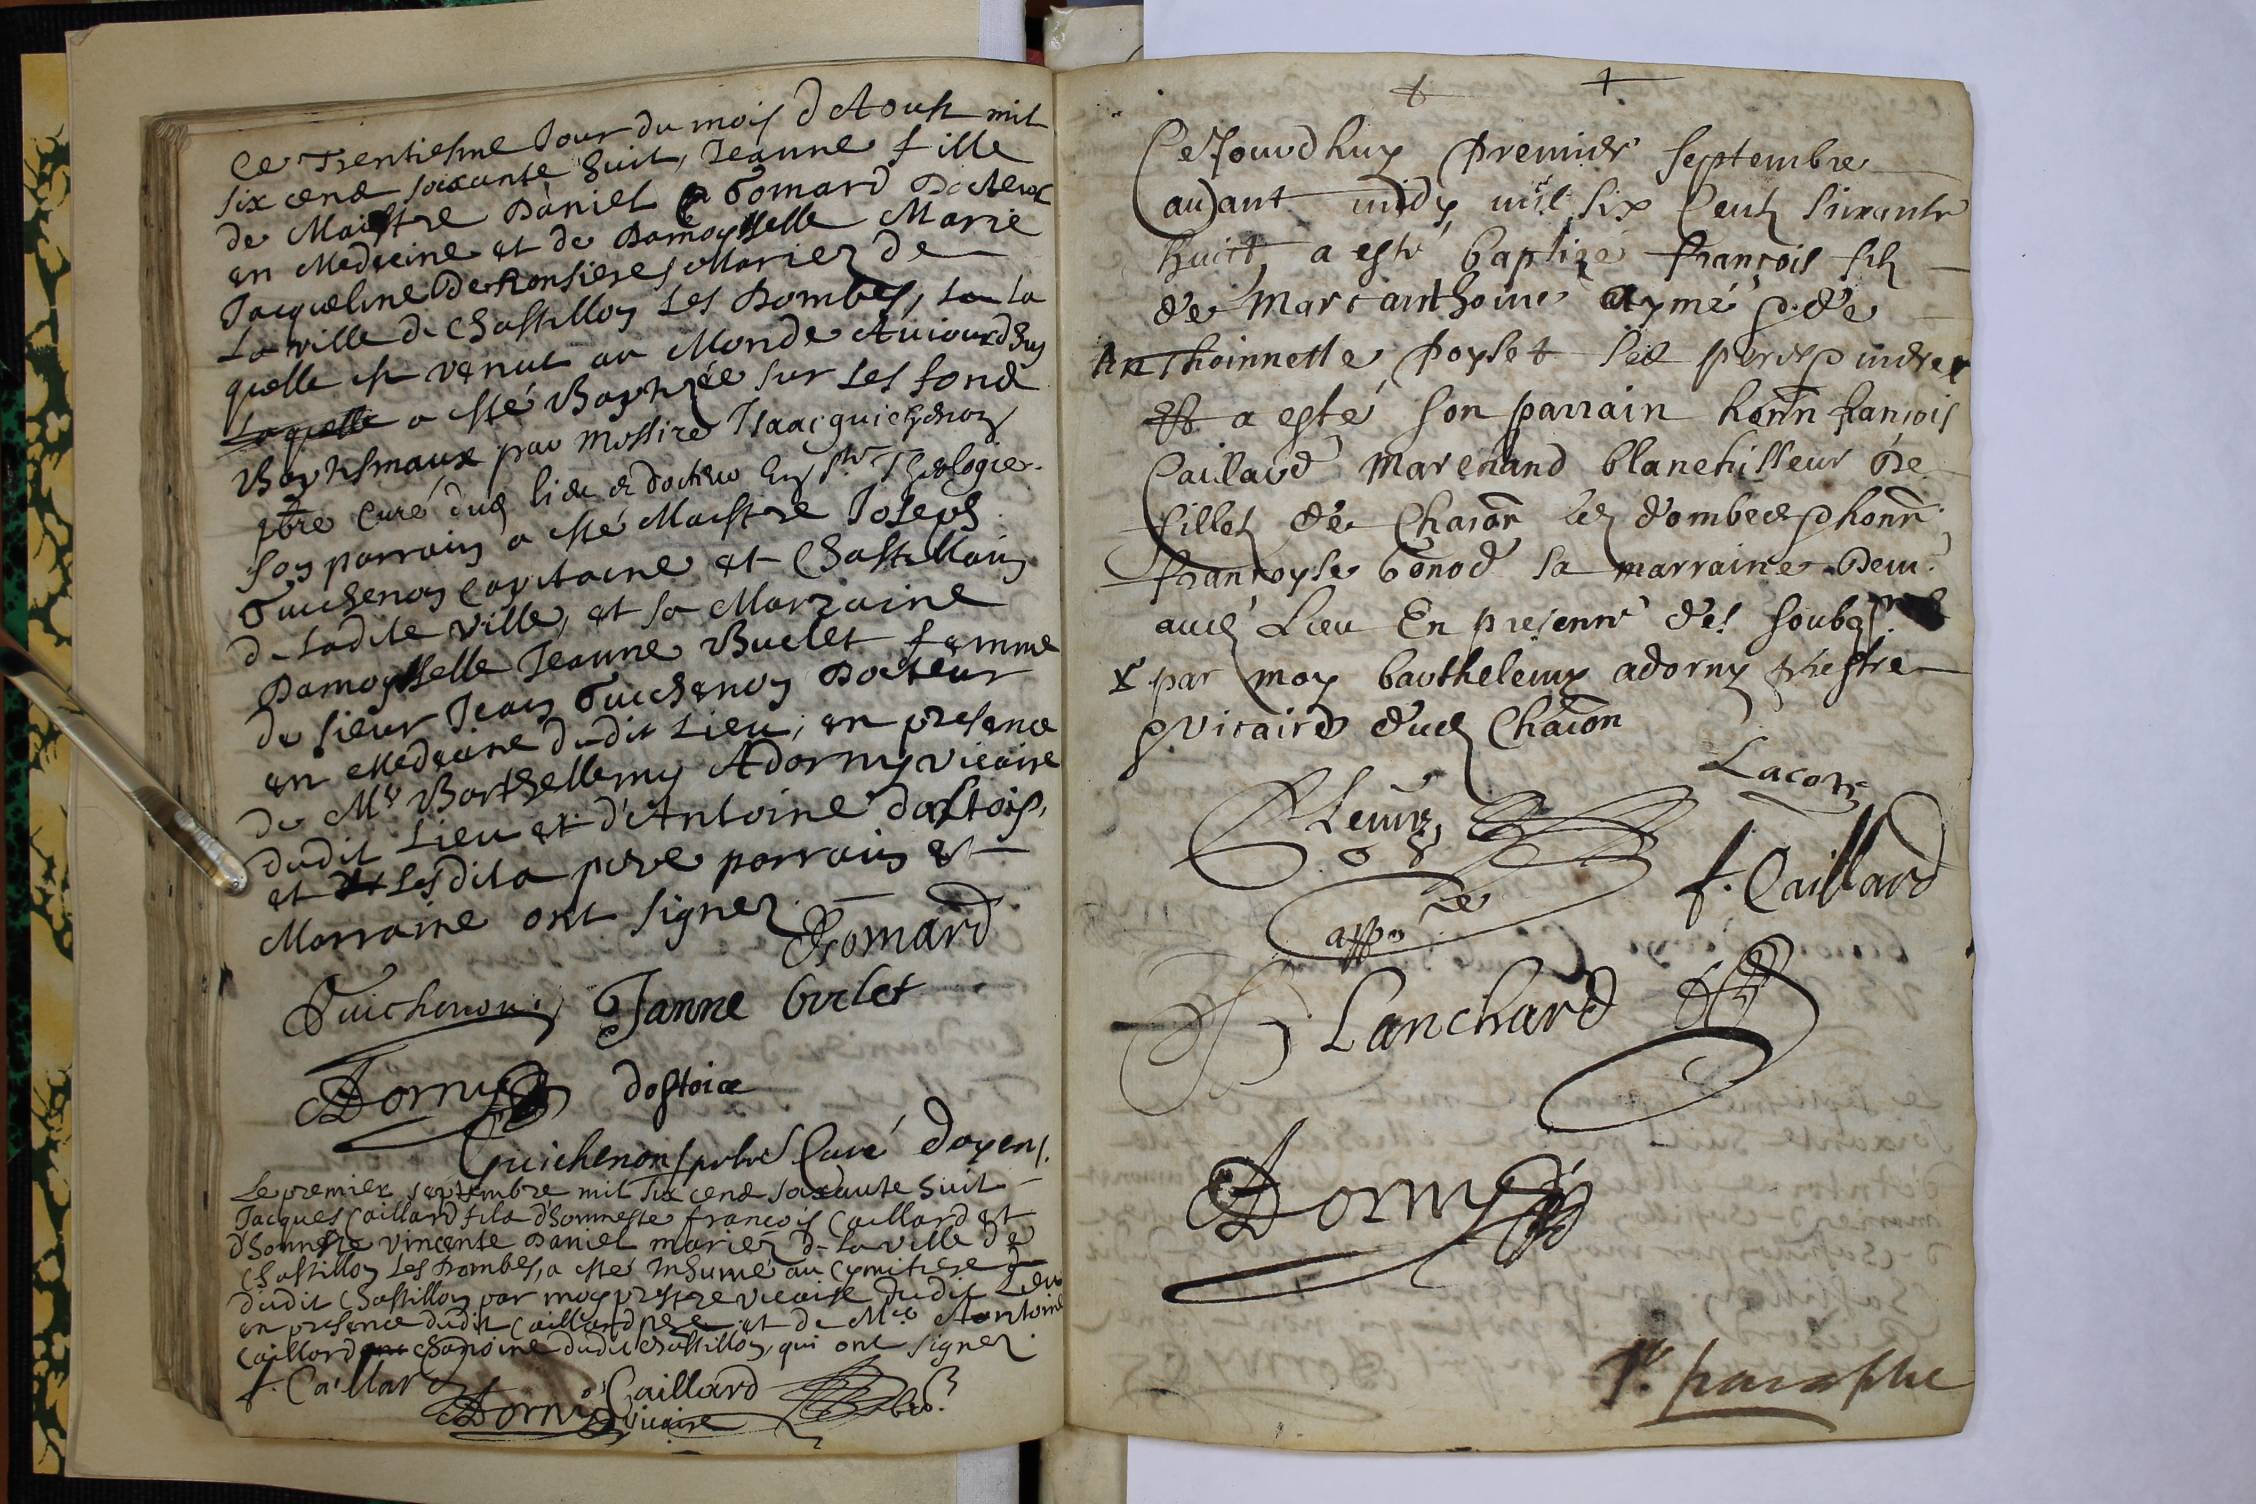 Ce Trentiesme Jour du mois d'Aoust mil
six cens soixante huit, Jeanne fille
de Maistre Daniel Gomard Docteur
en Medecine et de Damoyselle Marie
Jacqueline De Ronsieres Mariez de
La ville de Chastillon Les Dombes, la
quelle est venue au Monde Aujourd'huy
Laquelle a esté Baptisée sur Les fonds
Baptismaux par Messire Isaac guichenon
pbre Curé dud lieu et docteur En Ste Theologie.
Son parrain a esté Maistre Joseph
Guichenon Capitaine et Chastellain
de Ladite ville, et sa Marraine
Damoyselle Jeanne Buclet femme
de sieur Jean Guichenon Docteur
en Medecine dudit Lieu, en presence
de Mre Barthellemy Adorny vicaire
dudit Lieu et d'Antoine dastois,
et Lesdits pere parrain et
Marraine ont signez.
Gomard
Guichenon Janne buclet
Adorny dostoice
Guichenon pbre Curé doyen
Le premier septembre mil six cens soixante huit
Jacques Caillard fils d'honneste françois Caillard et
d'honneste vincente Daniel mariez de La ville de
Chastillon Les Dombes, a esté Inhumé au Cymitiere
dudit Chastillon par moy prestre vicaire dudit Lieu
en presence dudit Caillard pere et de Mre Antoine
Caillard chanoine dudit Chastillon, qui ont signez.
f. Caillard Caillard
Adorny vicaire
Cejourdhuy premier septembre
avant midy mil six Centz soixante
huict a esté baptizé françois filz
de Marcanthoine Aymé & de
Anthoinnette poyset ses pere & mere
a esté son parrain honn françois
Cailard Marchand blanchisseur de
fillet de Chaton les dombes & honn
françoyse bonod sa marraine
aud Lieu En presence des soubz
par moy barthelemy adorny prestre
& vicaire dud Chaton
Lacoste
f. Caillard
Lanchard
Adorny
paraphe